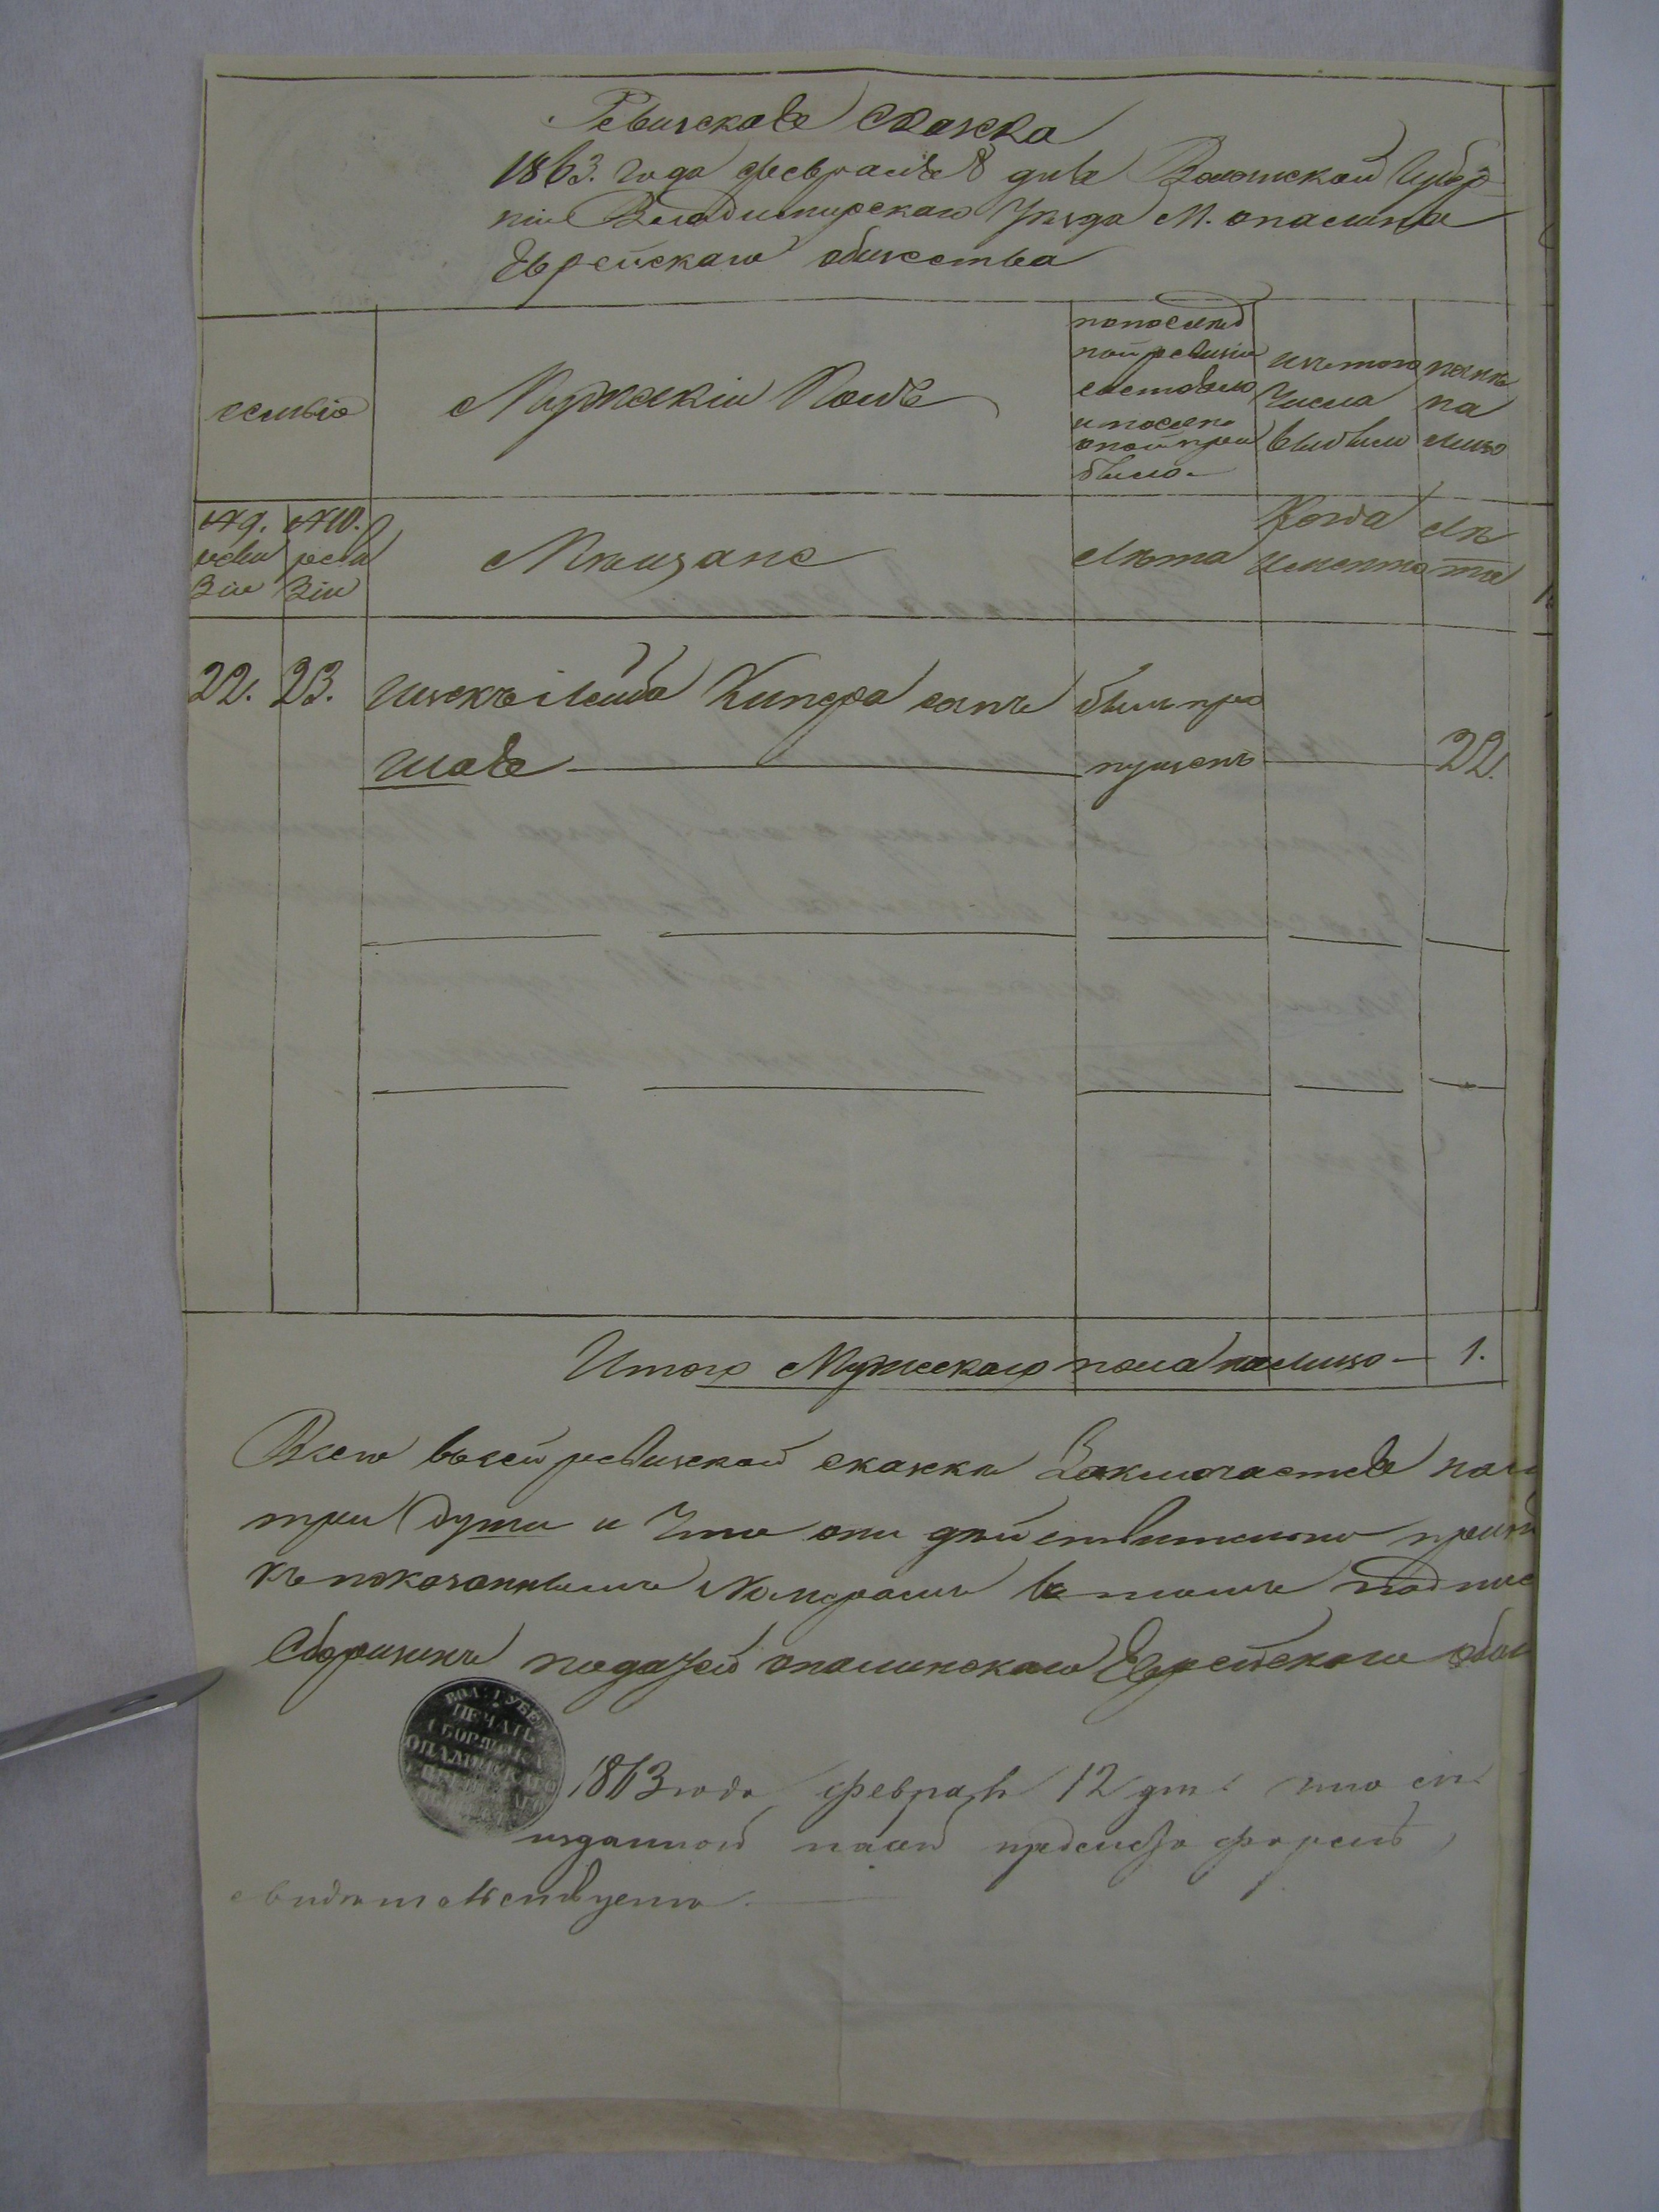 Ревизская Сказка
1863. года февраля 8 дня Волынской Губер
ніи Владимирскаго Уѣзда М. опалина
Еврейскаго общества
семьіо
Мужескій Полъ
по послѣд
ной ревизіи
состояло
и после
оной при
было
изъ того
Числа
выбыли
нынѣ
на
лицо
№ 9. № 10.
реви реви
зіи зіи
Мѣщане
Лѣта
Когда
именно
Лѣ
та
22. 23. Ицекъ Лейба Кипера сынъ былъ про
пущенъ 22.
Итого Мужескаго пола налицо — 1.
Всего въ сей ревизской сказки Заключается
три души и Что они действительно
къ показаннымъ Номерамъ в томъ
Сборщикъ податей опалинскаго Еврейскаго
ВОЛ. ГУБЕР
ПЕЧАТЬ
СБОРЩИКА
ОПАЛИНСКАГО
1863 года февраля 12 дня что
изданной
свидетельствуетъ